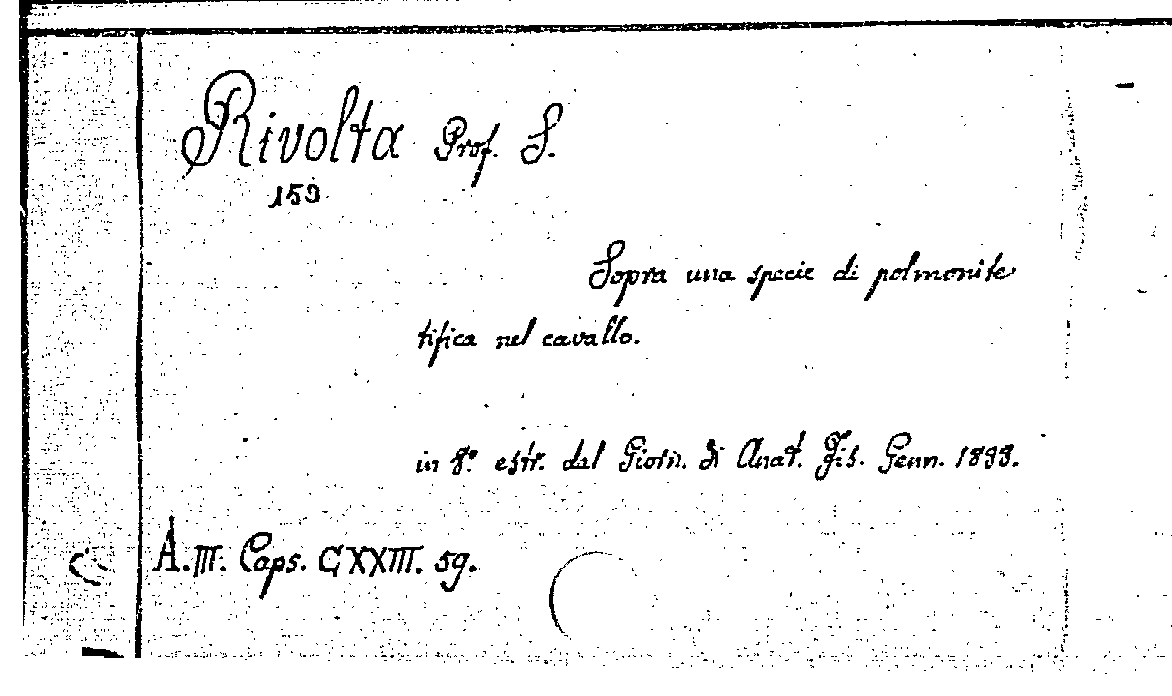 Rivolta Prof. S.
159
Sopra una specie di polmonite
tifica nel cavallo.
in 8.° estr. dal Giorn. di Anat. Fis. Genn. 1893.
A. III. Caps. CXXIII. 59.